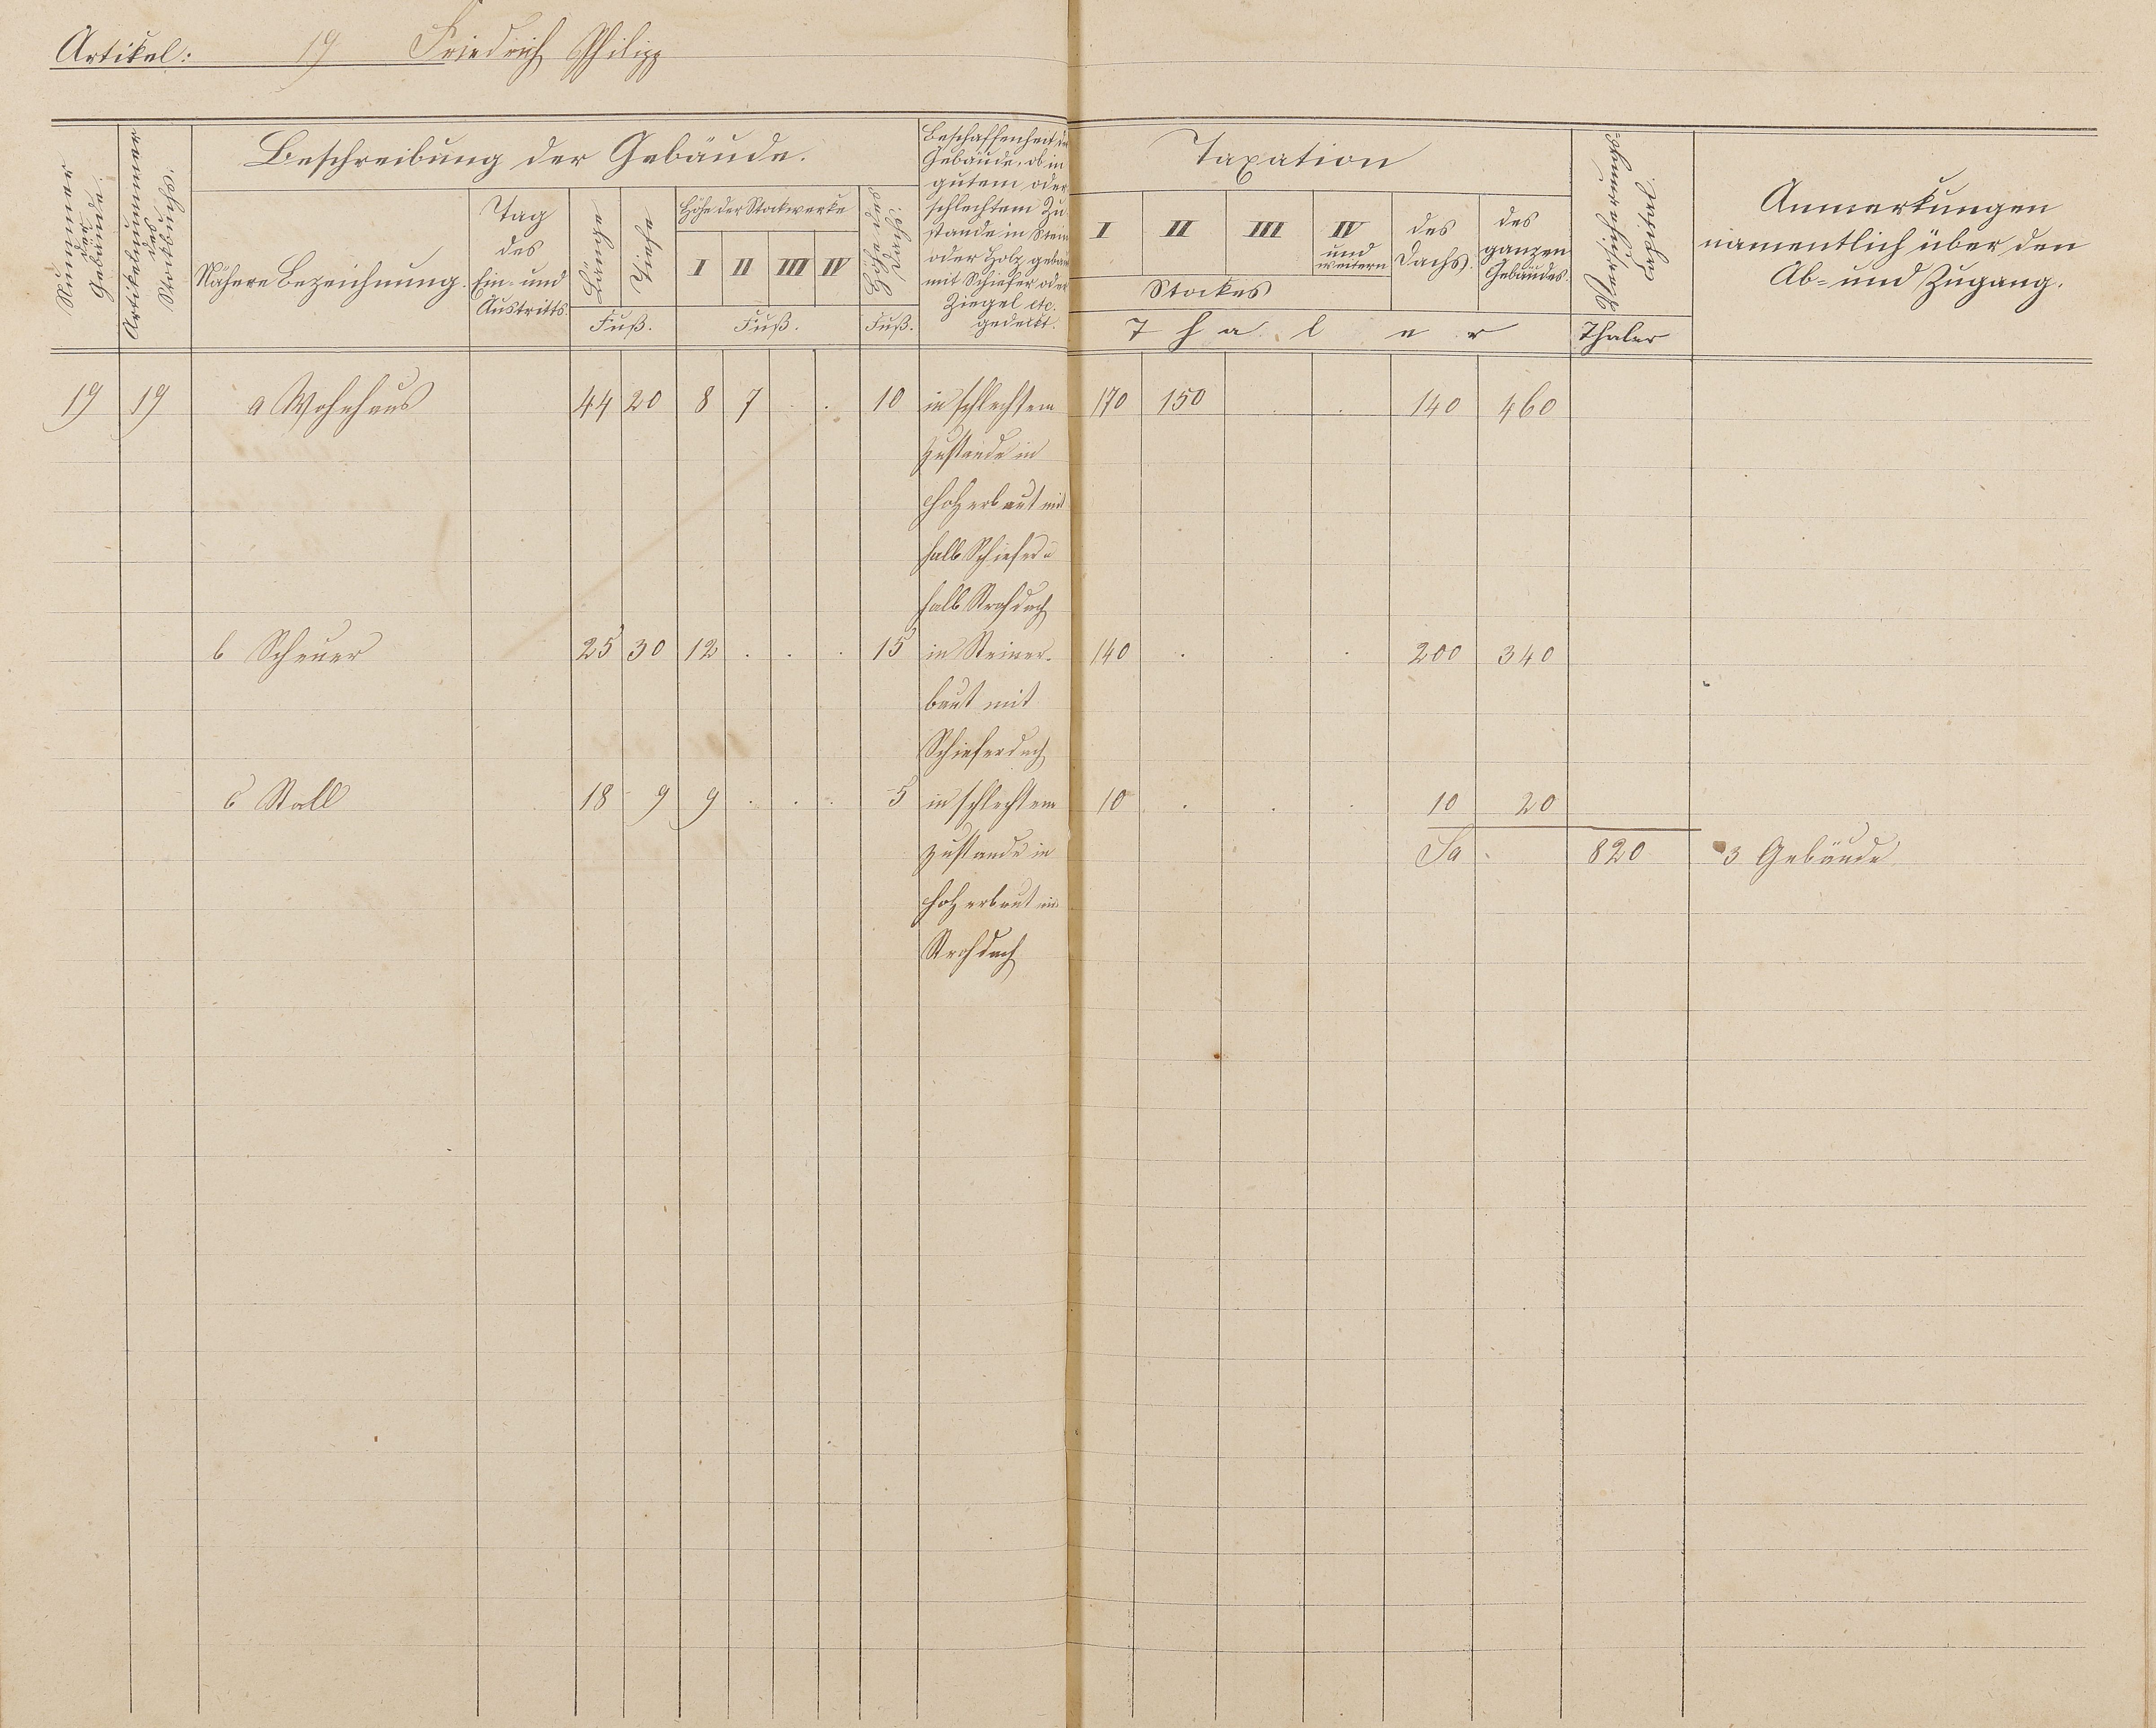 Artikel: 19 Friedrich Philipp
Nummer der Gebäude.
Artikelnummer des Stockbuchs.
Beschreibung der Gebäude.
Nähere Bezeichnung.
Tag
des
Ein- und
Austritts.
Länge
Tiefe
Fuß.
Höhe der Stockwerke
I II III IV
Fuß.
Höhe des Dachs.
Fuß.
Beschaffenheit der
Gebäude, ob in
gutem oder
schlechtem Zu-
stande in Stein
oder Holz gebaut
mit Schiefer oder
Ziegel etc.
gedeckt.
Taxation
I II III IV
und
weitern
Stockes
des
Dachs.
des
ganzen
Gebäudes.
Thaler
Versicherungs
Capital
Thaler
Anmerkungen
namentlich über den
Ab- und Zugang.
19 19 a Wohnhaus 44 20 8 7 . . 10 in schlechtem 170 150 . . 140 460
Zustande in
Holz erbaut mit
halb Schiefer u
halb Strohdach
b Scheuer 25 30 12 . . . 15 in Steiner- 140 . . . 200 340
baut mit
Schieferdach
c Stall 18 9 9 . . . 5 in schlechtem 10 . . . 10 20
Zustande in Sa . 820 3 Gebäude
Holz erbaut mit
Strohdach